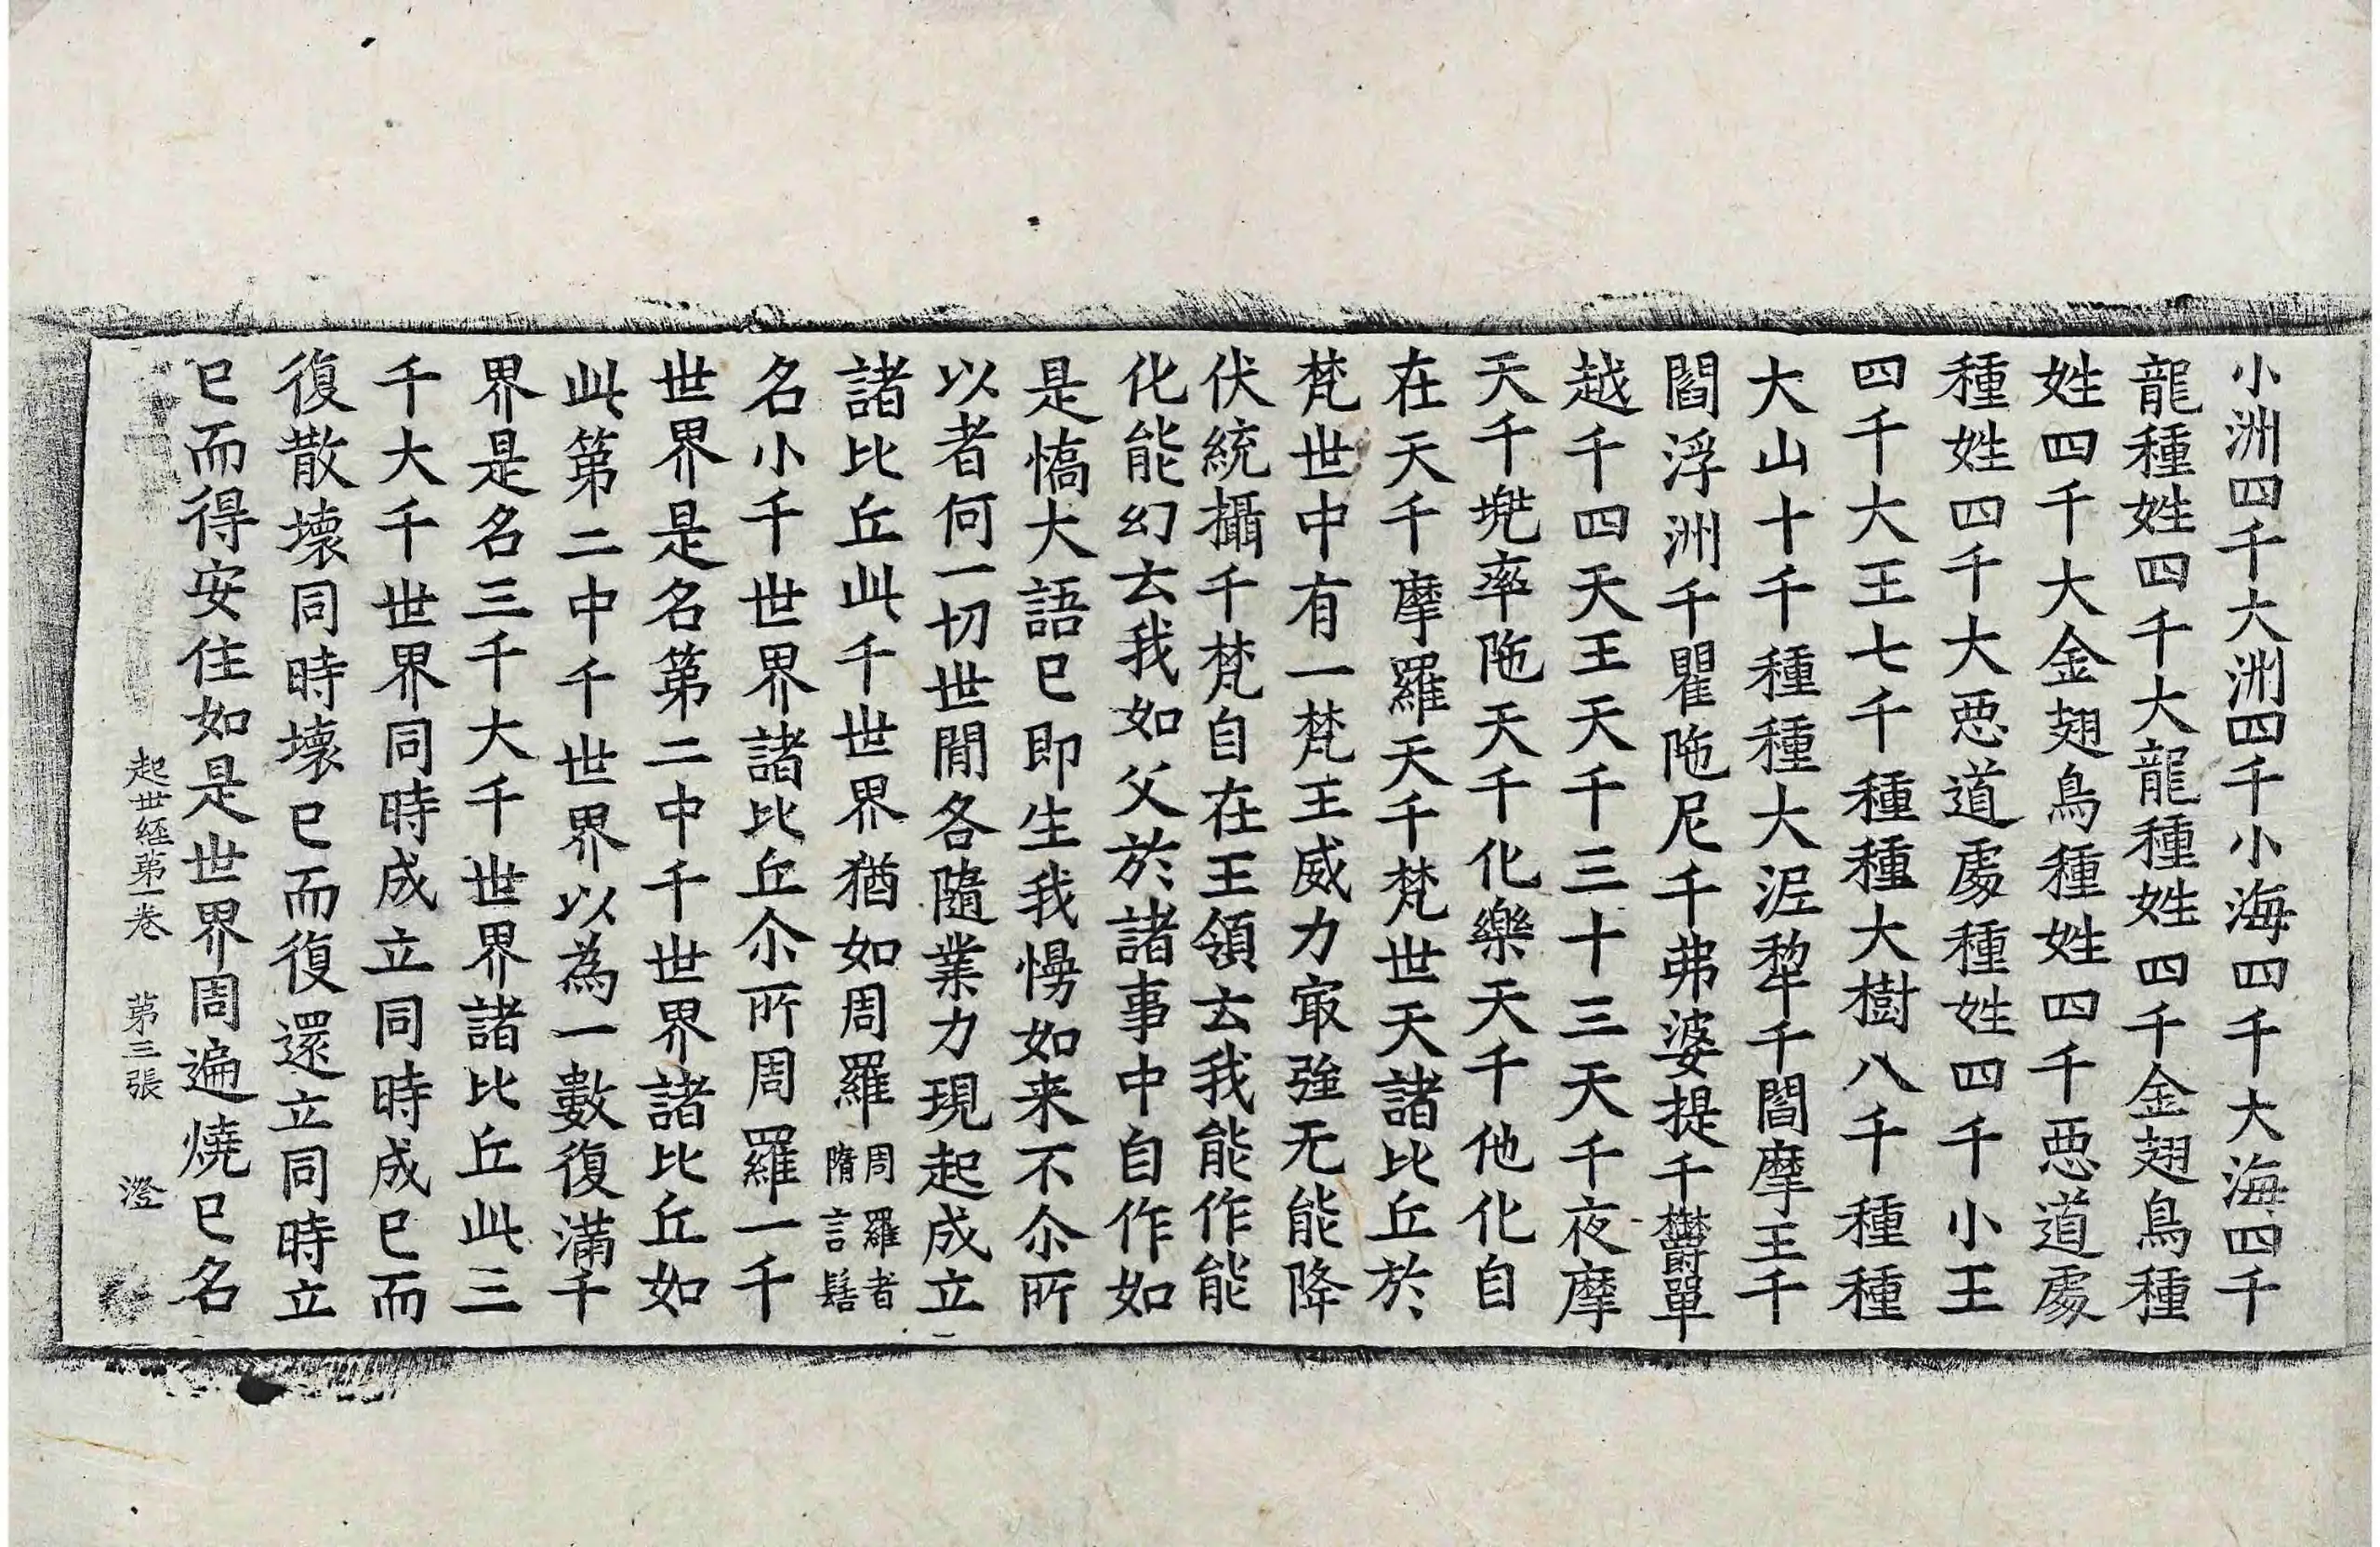 小洲四千大洲四千小海四千大海四千
龍種姓四千大龍種姓四千金翅鳥種
姓四千大金翅鳥種姓四千惡道處
種姓四千大惡道處種姓四千小王
四千大王七千種種大樹八千種種
大山十千種種大泥犂千閻摩王千
閻浮洲千瞿陁尼千弗婆提千欝單
越千四天王天千三十三天千夜摩
天千兠率陁天千化樂天千他化自
在天千摩羅天千梵世天諸比丘於
梵世中有一梵王威力冣強无能降
伏統攝千梵自在王領云我能作能
化能幻云我如父於諸事中自作如
是憍大語已即生我慢如来不尒所
以者何一切世閒各隨業力現起成立
諸比丘此千世界猶如周羅周羅者隋言髻
名小千世界諸比丘尒所周羅一千
世界是名第二中千世界諸比丘如
此第二中千世界以為一數復滿千
界是名三千大千世界諸比丘此三
千大千世界同時成立同時成已而
復散壞同時壞已而復還立同時立
已而得安住如是世界周遍燒已名
起世経第一卷 第三張 澄